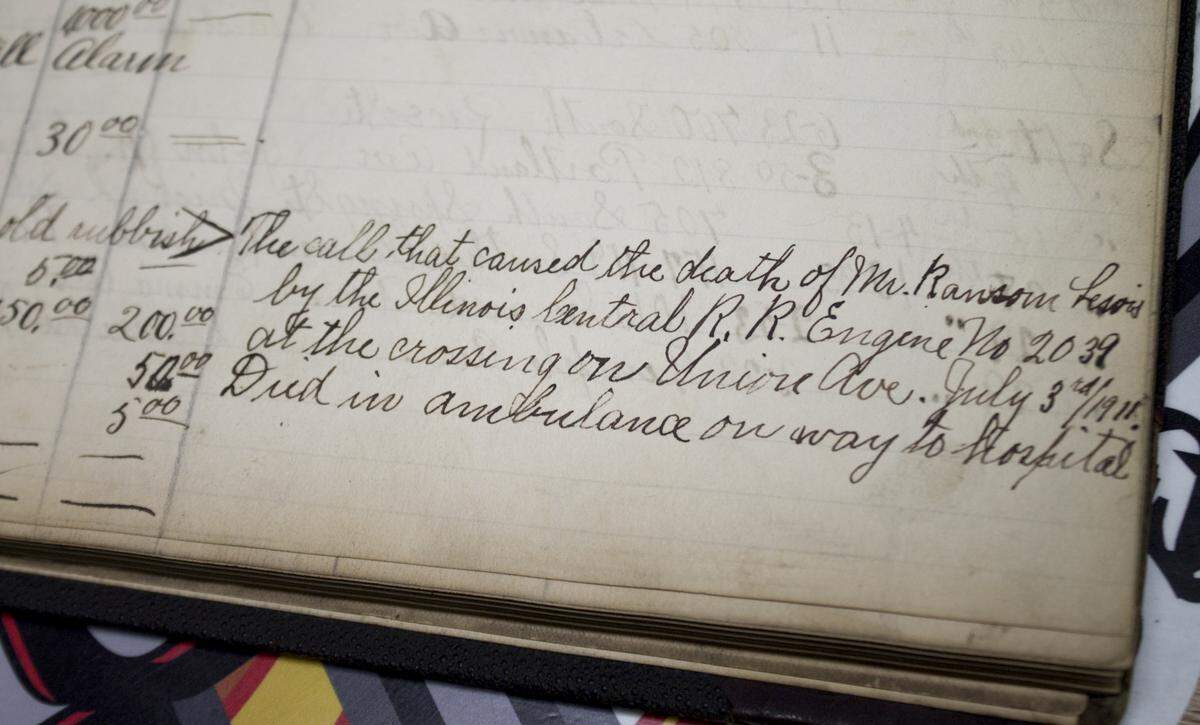 1000.00
Alarm
30.00
old rubbish > The call that caused the death of Mr. Ransom
5.00 by the Illinois Central R. R. Engine No 2039
50.00 200.00 at the crossing on Union Ave. July 3rd/1911.
50.00 Died in ambulance on way to hospital
5.00